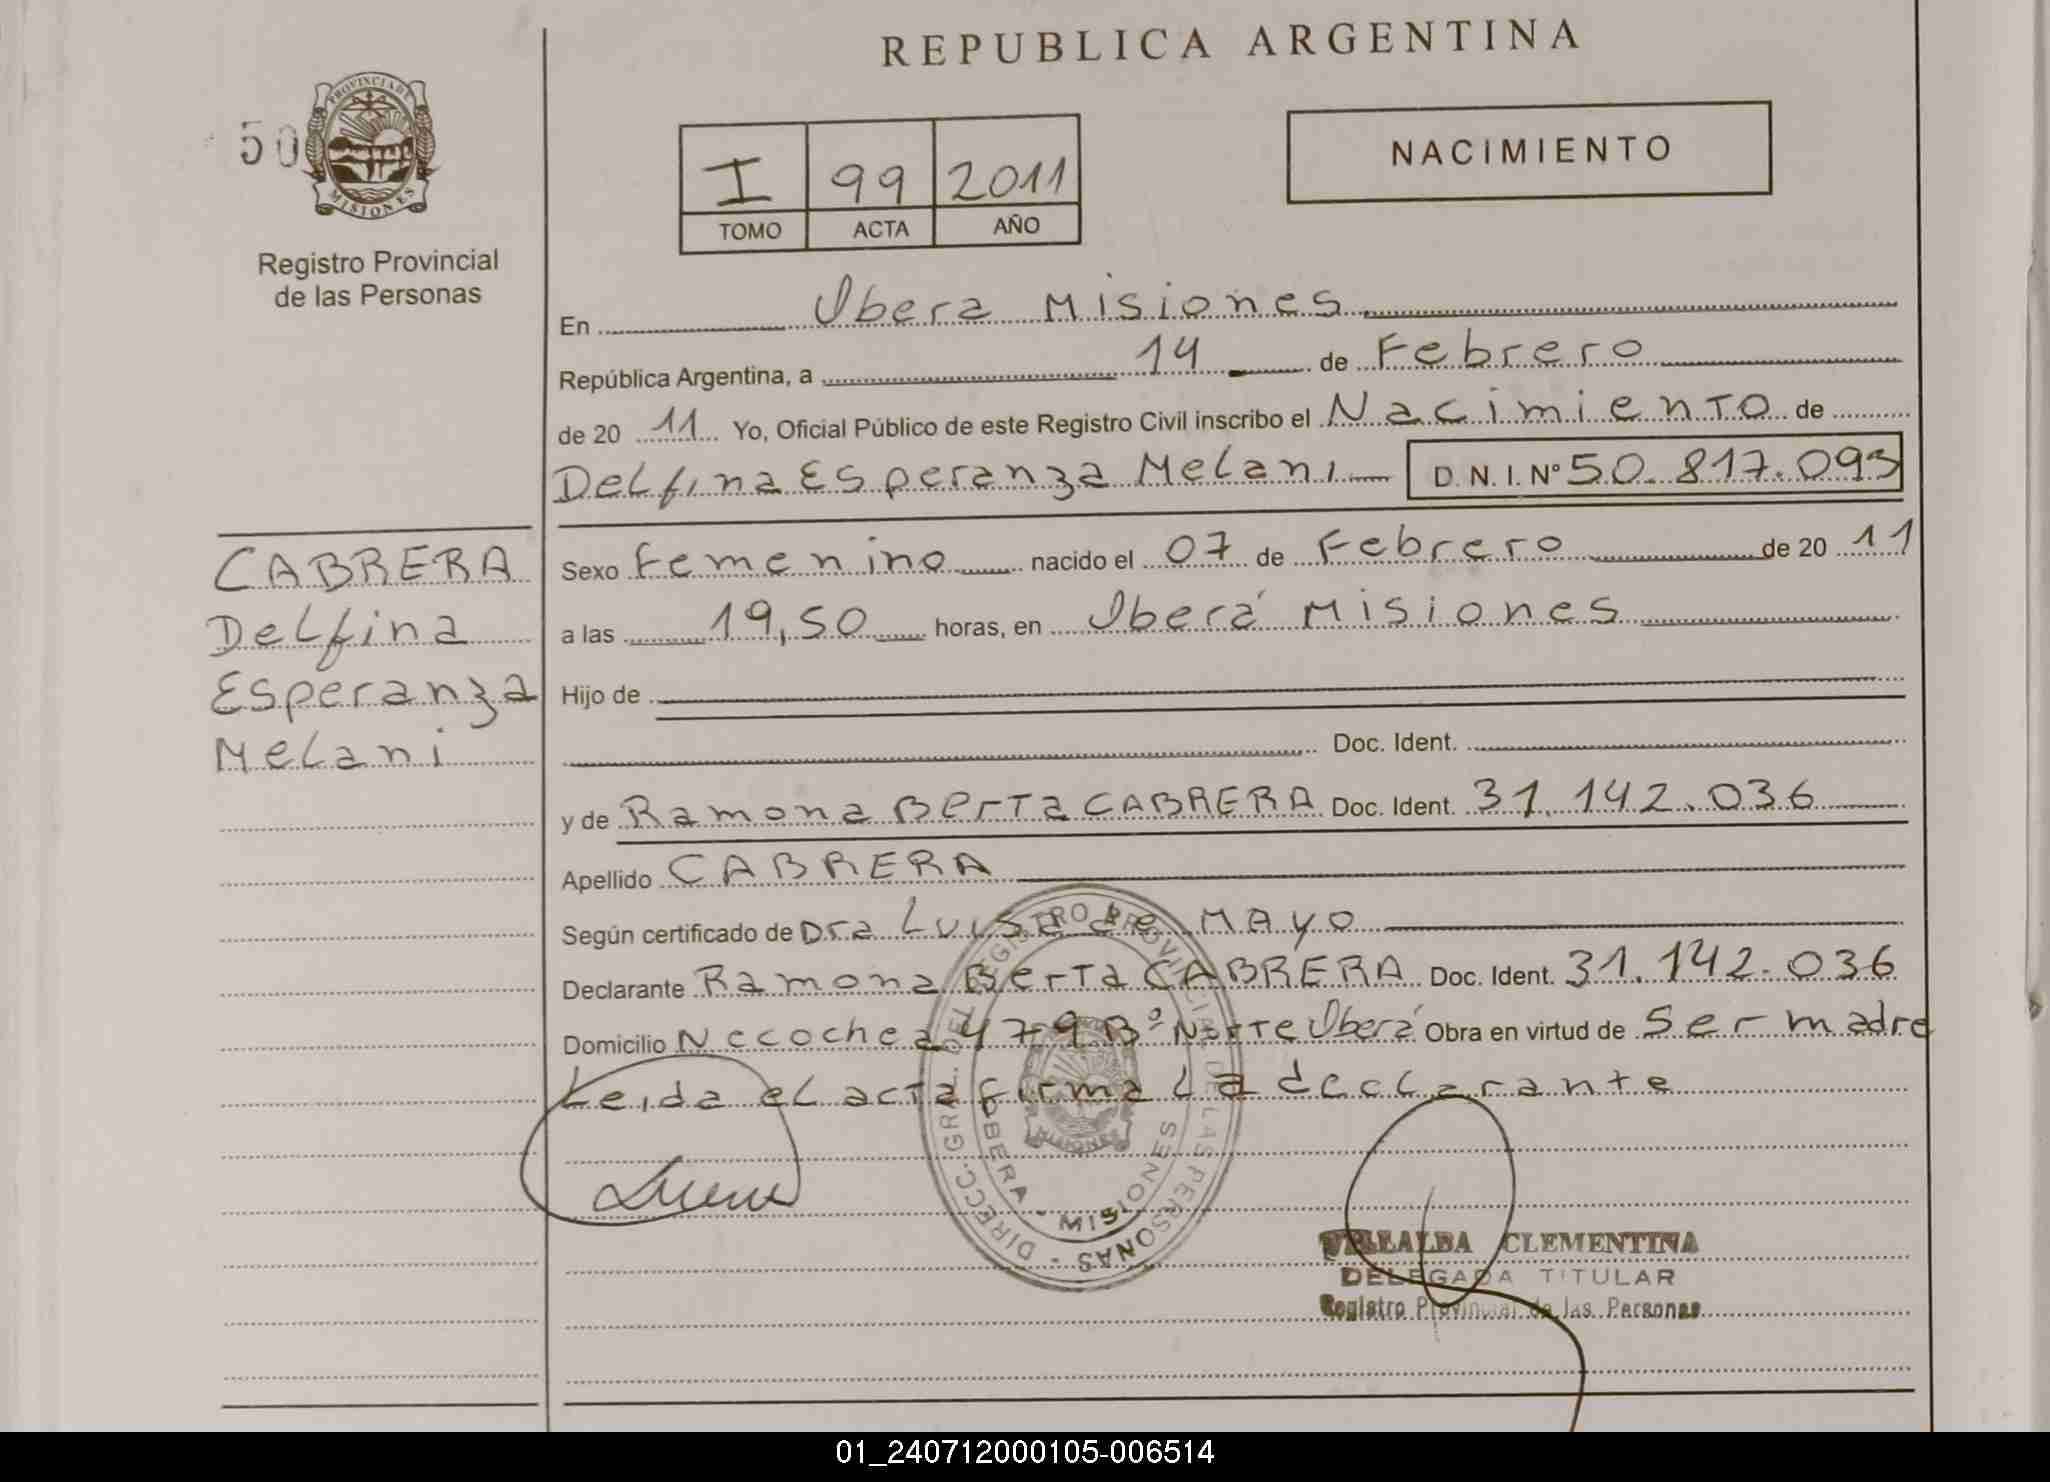 REPUBLICA ARGENTINA
50
PROVINCIA DE MISIONES
Registro Provincial
de las Personas
I 99 2011
TOMO ACTA AÑO
NACIMIENTO
En Obera Misiones
República Argentina, a 14 de Febrero
de 2011 Yo, Oficial Público de este Registro Civil inscribo el Nacimiento de
Delfina Esperanza Melani D.N.I.Nº 50.817.093
CABRERA
Delfina
Esperanza
Melani
Sexo Femenino nacido el 07 de Febrero de 2011
a las 19,50 horas, en Oberá Misiones
Hijo de
Doc. Ident.
y de Ramona Berta CABRERA Doc. Ident. 31.142.036
Apellido CABRERA
Según certificado de Dra Luisa de MAYO
Declarante Ramona Berta CABRERA Doc. Ident. 31.142.036
Domicilio Necochea 479 Bº Norte Oberá Obra en virtud de Ser madre
Leida el acta firma la declarante
DIRECC. GRAL. DEL REGISTRO PROVINCIAL DE LAS PERSONAS -
OBERA - MISIONES
MISIONES
VILLALBA CLEMENTINA
DELEGADA TITULAR
Registro Provincial de las Personas
01_240712000105-006514